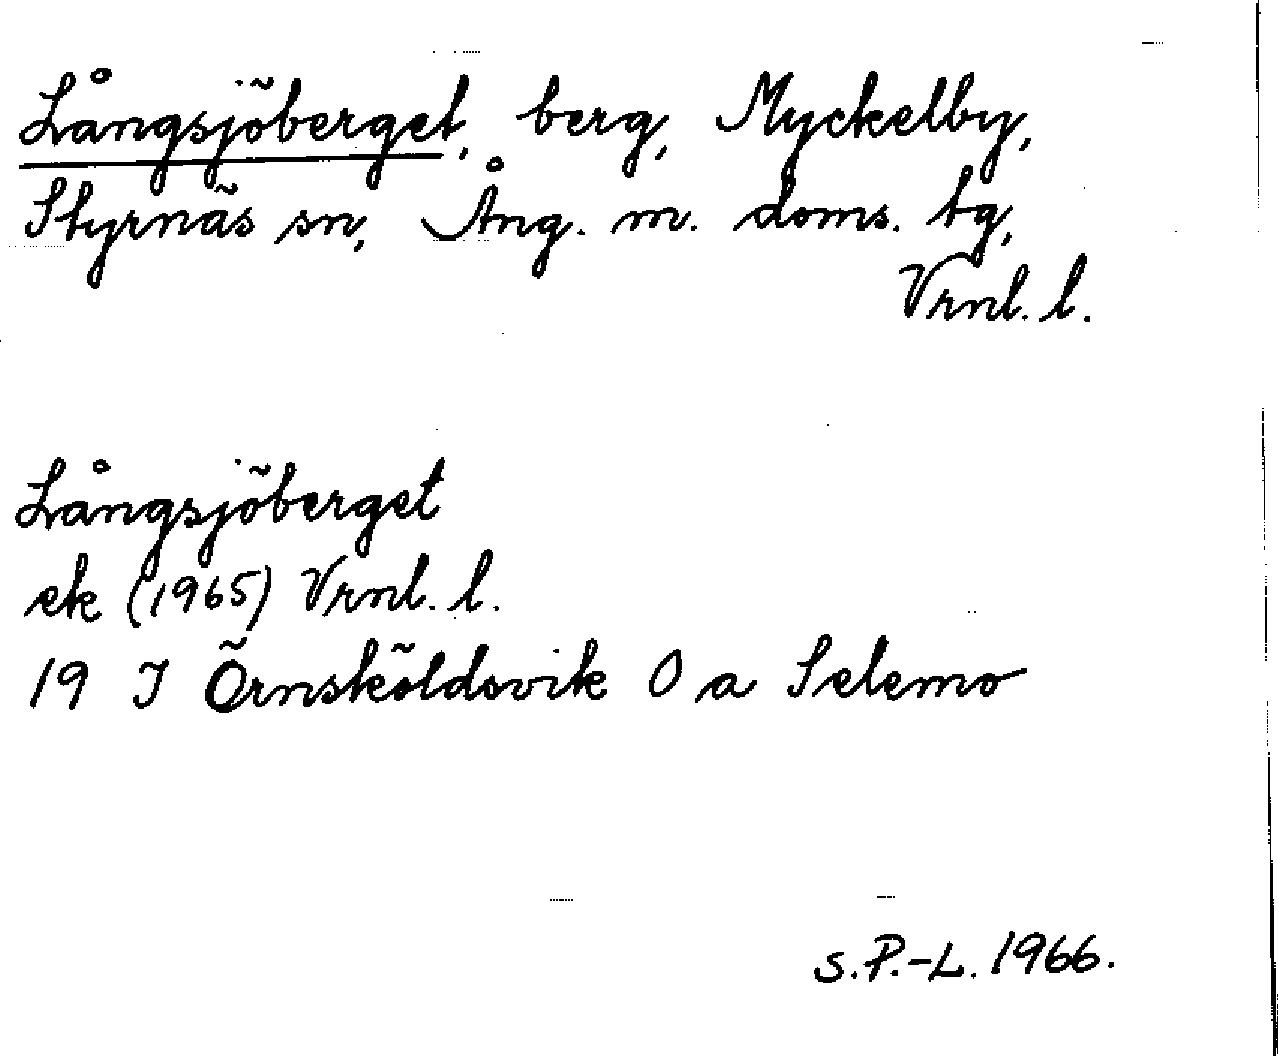 Långsjöberget, berg, Myckelby,
Styrnäs sn, Ång. m. doms. tg,
Vrnl. l.
Långsjöberget
ek (1965) Vrnl. l.
19 I Örnsköldsvik O a Selemo
S.P.-L. 1966.